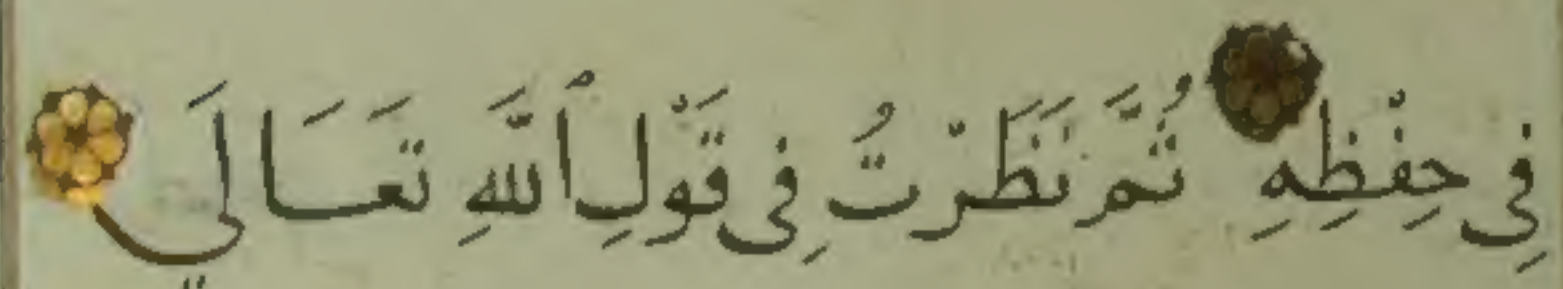 فِي حِفْظِهِ ثُمَّ نَظَرْتُ فِي قَوْلِ ٱللَّهِ تَعَالَى